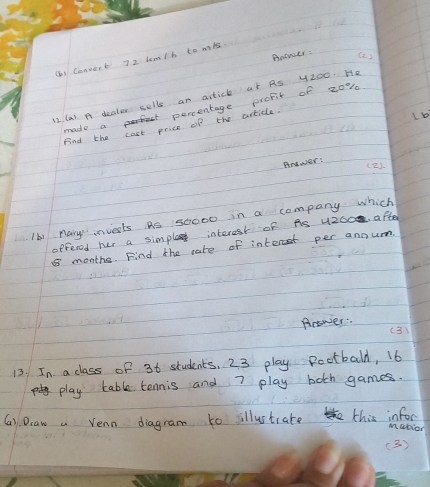 (b) Convert 72 km/h to m/s
Answer: (2)
12. (a) A dealer sells an article at Rs 4200. He
made a percentage profit of 20%.
Find the cost price of the article.
Answer: (2)
(b) Mary invests Rs 50000 in a company which
offered her a simple interest of Rs 4200. after
8 months. Find the rate of interest per annum.
Answer: (3)
13. In a class of 36 students, 23 play football, 16
play table tennis and 7 play both games.
(a) Draw a Venn diagram to illustrate this infor
mation
(3)